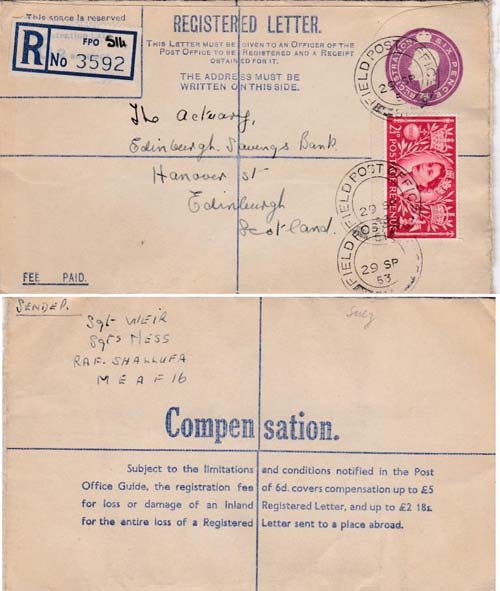 This space is reserved
R
FPO 514
No 3592
REGISTERED LETTER.
THIS LETTER MUST BE GIVEN TO AN OFFICER OF THE
POST OFFICE TO BE REGISTERED AND A RECEIPT
OBTAINED FOR IT.
THE ADDRESS MUST BE
WRITTEN ON THIS SIDE.
REGISTRATION SIX PENCE
FIELD POST OFFICE
29 SP
2½D POSTAGE REVENUE
The Actuary,
Edinburgh Savings Bank
Hanover St
Edinburgh
Scotland.
FIELD POST OFFICE
29 SP
FIELD POST
29 SP
53
FEE PAID.
SENDER.
Sgt WEIR
Sgts MESS
RAF. SHALLUFA
MEAF 16
Suez
Compensation.
Subject to the limitations and conditions notified in the Post
Office Guide, the registration fee of 6d. covers compensation up to £5
for loss or damage of an Inland Registered Letter, and up to £2 18s.
for the entire loss of a Registered Letter sent to a place abroad.